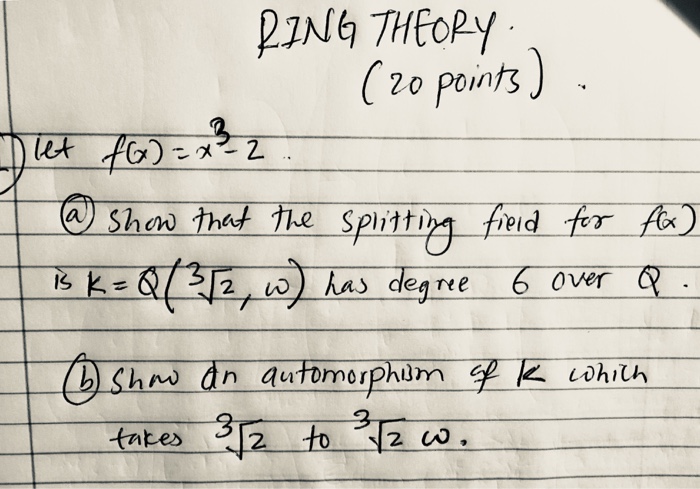 RING THEORY.
(20 points).
let f(x) = x³ - 2.
(a) show that the splitting field for f(x)
is K = Q(∛2, ω) has degree 6 over Q.
(b) Show an automorphism of K which
takes ∛2 to ∛2 ω.